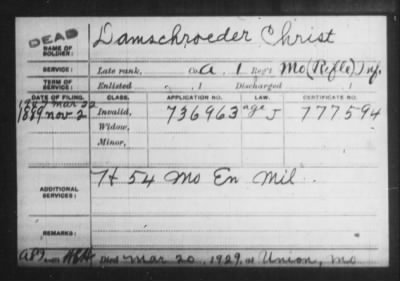 DEAD
NAME OF SOLDIER: Damschroeder Christ
SERVICE: Late rank, Co. A, 1 Reg't Mo (Rifle) Inf.
TERM OF SERVICE: Enlisted , 1 Discharged , 1
DATE OF FILING. CLASS. APPLICATION NO. LAW. CERTIFICATE NO.
Mar 22
1889 Nov 2 Invalid, 736963 age J 777594
Widow,
Minor,
ADDITIONAL SERVICES: H 54 Mo En Mil.
REMARKS:
Died Mar 20, 1929, at Union, Mo